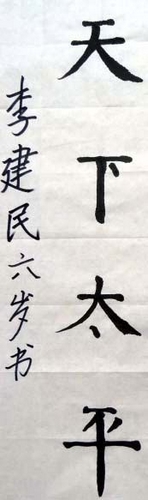 天下太平
李建民六岁书